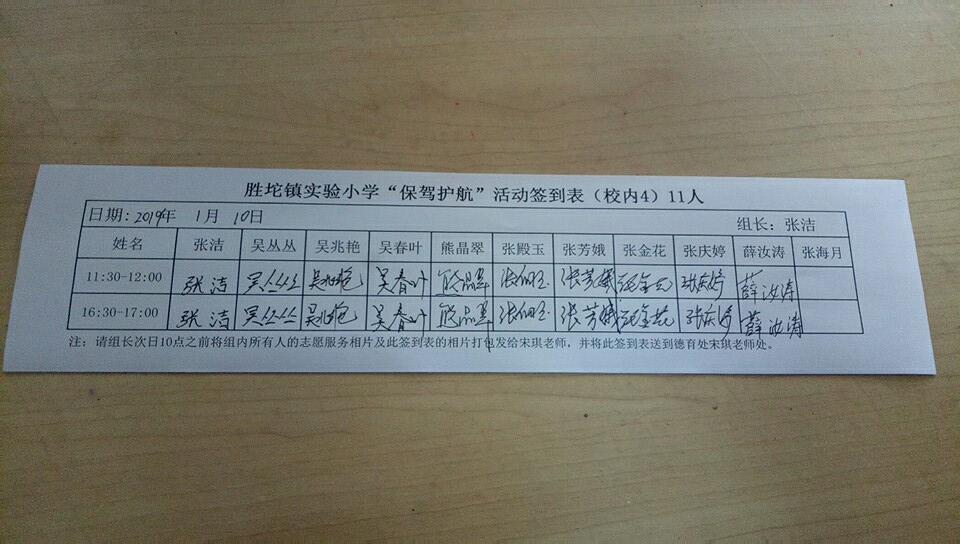 胜坨镇实验小学“保驾护航”活动签到表（校内4）11人
日期: 2019年 1月 10日 组长: 张洁
姓名 张洁 吴丛丛 吴兆艳 吴春叶 熊晶翠 张殿玉 张芳娥 张金花 张庆婷 薛汝涛 张海月
11:30-12:00 张洁 吴丛丛 吴兆艳 吴春叶 熊晶翠 张殿玉 张芳娥 张金花 张庆婷 薛汝涛
16:30-17:00 张洁 吴丛丛 吴兆艳 吴春叶 熊晶翠 张殿玉 张芳娥 张金花 张庆婷 薛汝涛
注: 请组长次日10点之前将组内所有人的志愿服务相片及此签到表的相片打包发给宋琪老师，并将此签到表送到德育处宋琪老师处。